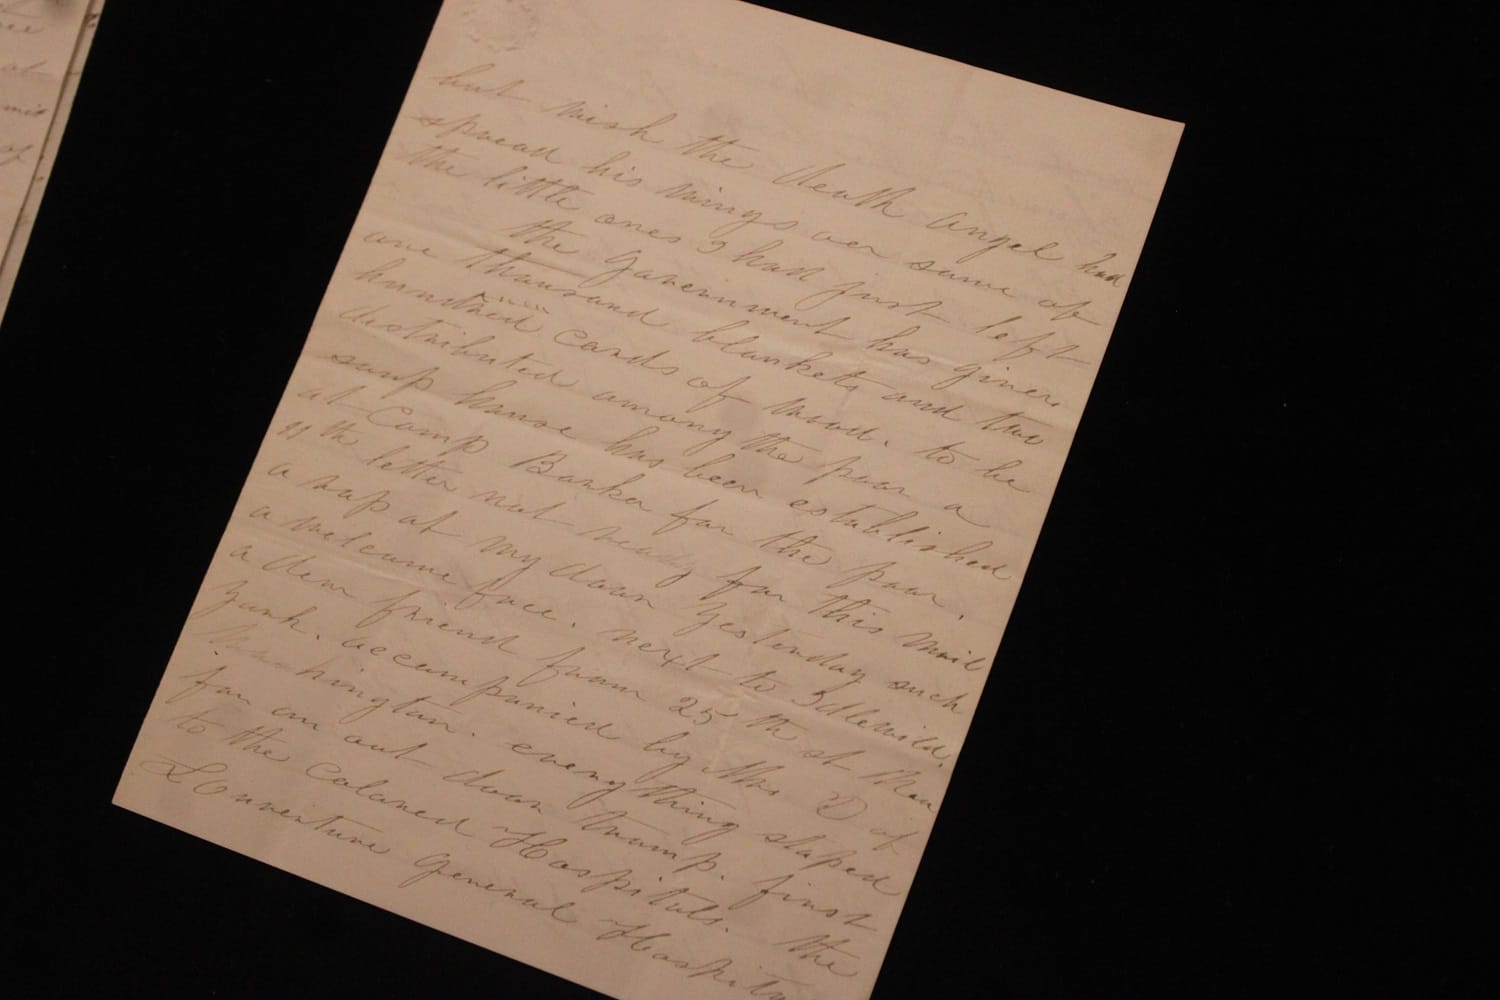 but wish the death angel had
spread his wings over some of
the little ones I had just left
the Government has given
one thousand blankets and two
hundred cords of wood. to be
distributed among the poor a
soup house has been established
at Camp Barker for the poor.
letter not ready for this mail
a rap at my door yesterday such
a welcome face. next to Idlewild.
a dear friend from 25th st New
York. accompanied by Mrs D of
Washington. every thing shaped
for an out door tramp. first
to the Colored Hospitals. The
L'Ouverture General Hospital